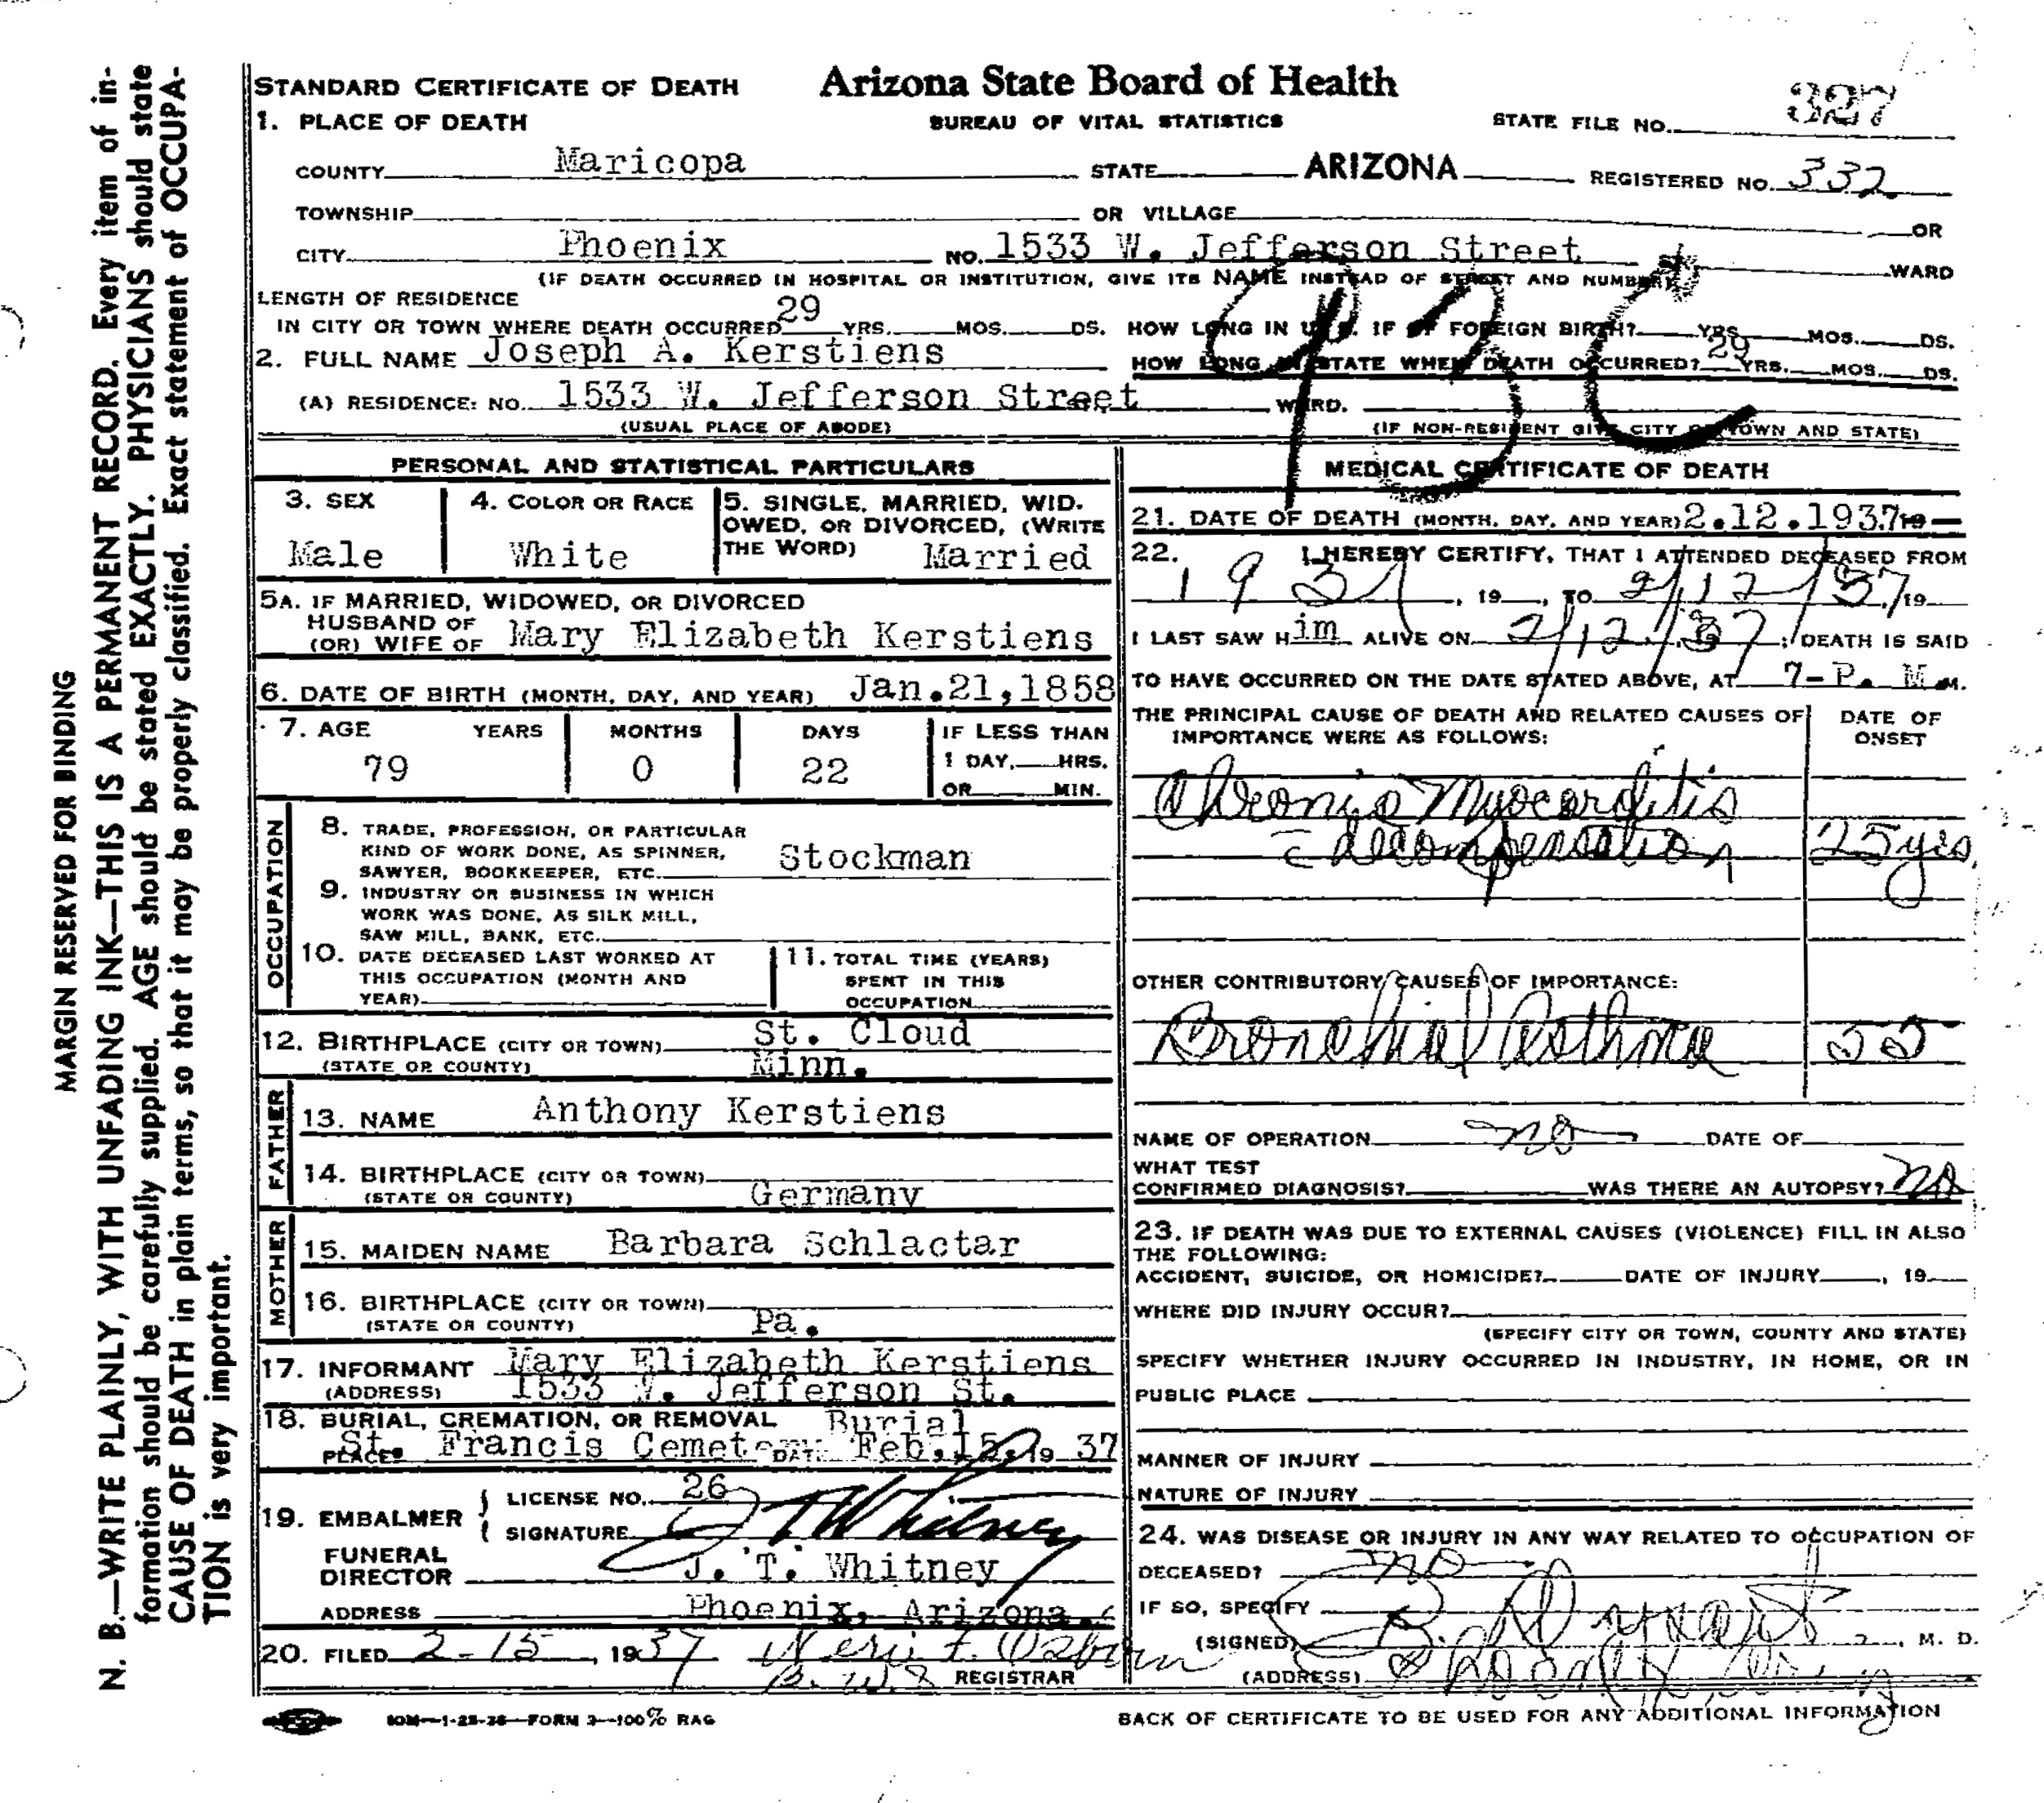 MARGIN RESERVED FOR BINDING
N. B.—WRITE PLAINLY, WITH UNFADING INK—THIS IS A PERMANENT RECORD. Every item of in-
formation should be carefully supplied. AGE should be stated EXACTLY. PHYSICIANS should state
CAUSE OF DEATH in plain terms, so that it may be properly classified. Exact statement of OCCUPA-
TION is very important.
STANDARD CERTIFICATE OF DEATH Arizona State Board of Health
1. PLACE OF DEATH BUREAU OF VITAL STATISTICS STATE FILE NO. 327
COUNTY Maricopa STATE ARIZONA REGISTERED NO. 332
TOWNSHIP OR VILLAGE OR
CITY Phoenix NO. 1533 W. Jefferson Street WARD
(IF DEATH OCCURRED IN HOSPITAL OR INSTITUTION, GIVE ITS NAME INSTEAD OF STREET AND NUMBER)
LENGTH OF RESIDENCE
IN CITY OR TOWN WHERE DEATH OCCURRED 29 YRS. MOS. DS. HOW LONG IN U. S. IF OF FOREIGN BIRTH? YRS. MOS. DS.
2. FULL NAME Joseph A. Kerstiens HOW LONG IN STATE WHEN DEATH OCCURRED? 29 YRS. MOS. DS.
(A) RESIDENCE: NO. 1533 W. Jefferson Street WARD.
(USUAL PLACE OF ABODE) (IF NON-RESIDENT GIVE CITY OR TOWN AND STATE)
93C
PERSONAL AND STATISTICAL PARTICULARS
3. SEX 4. COLOR OR RACE 5. SINGLE, MARRIED, WID-
OWED, OR DIVORCED, (WRITE
THE WORD)
Male White Married
5A. IF MARRIED, WIDOWED, OR DIVORCED
HUSBAND OF
(OR) WIFE OF Mary Elizabeth Kerstiens
6. DATE OF BIRTH (MONTH, DAY, AND YEAR) Jan.21,1858
7. AGE YEARS MONTHS DAYS IF LESS THAN
1 DAY, HRS.
79 0 22
OR MIN.
OCCUPATION
8. TRADE, PROFESSION, OR PARTICULAR
KIND OF WORK DONE, AS SPINNER,
SAWYER, BOOKKEEPER, ETC. Stockman
9. INDUSTRY OR BUSINESS IN WHICH
WORK WAS DONE, AS SILK MILL,
SAW MILL, BANK, ETC.
10. DATE DECEASED LAST WORKED AT
THIS OCCUPATION (MONTH AND
YEAR)
11. TOTAL TIME (YEARS)
SPENT IN THIS
OCCUPATION
12. BIRTHPLACE (CITY OR TOWN) St. Cloud
(STATE OR COUNTY) Minn.
FATHER
13. NAME Anthony Kerstiens
14. BIRTHPLACE (CITY OR TOWN)
(STATE OR COUNTY) Germany
MOTHER
15. MAIDEN NAME Barbara Schlactar
16. BIRTHPLACE (CITY OR TOWN)
(STATE OR COUNTY) Pa.
17. INFORMANT Mary Elizabeth Kerstiens
(ADDRESS) 1533 W. Jefferson St.
18. BURIAL, CREMATION, OR REMOVAL Burial
PLACE St. Francis Cemetery DATE Feb.15, 19 37
19. EMBALMER LICENSE NO. 26
SIGNATURE J T Whitney
FUNERAL
DIRECTOR J. T. Whitney
ADDRESS Phoenix, Arizona.
20. FILED 2-15, 1937
REGISTRAR
MEDICAL CERTIFICATE OF DEATH
21. DATE OF DEATH (MONTH, DAY, AND YEAR) 2.12.1937 19
22. I HEREBY CERTIFY, THAT I ATTENDED DECEASED FROM
1931, 19 , TO 2/12/37, 19
I LAST SAW Him ALIVE ON 2/12/37; DEATH IS SAID
TO HAVE OCCURRED ON THE DATE STATED ABOVE, AT 7-P. M M.
THE PRINCIPAL CAUSE OF DEATH AND RELATED CAUSES OF
IMPORTANCE WERE AS FOLLOWS:
DATE OF
ONSET
Chronic Myocarditis
c decompensation 25 yrs
OTHER CONTRIBUTORY CAUSES OF IMPORTANCE:
Bronchial Asthma
NAME OF OPERATION no DATE OF
WHAT TEST
CONFIRMED DIAGNOSIS? WAS THERE AN AUTOPSY? no
23. IF DEATH WAS DUE TO EXTERNAL CAUSES (VIOLENCE) FILL IN ALSO
THE FOLLOWING:
ACCIDENT, SUICIDE, OR HOMICIDE? DATE OF INJURY , 19
WHERE DID INJURY OCCUR?
(SPECIFY CITY OR TOWN, COUNTY AND STATE)
SPECIFY WHETHER INJURY OCCURRED IN INDUSTRY, IN HOME, OR IN
PUBLIC PLACE
MANNER OF INJURY
NATURE OF INJURY
24. WAS DISEASE OR INJURY IN ANY WAY RELATED TO OCCUPATION OF
DECEASED? no
IF SO, SPECIFY
(SIGNED) , M. D.
(ADDRESS)
10M—1-25-36—FORM 3—100% RAG
BACK OF CERTIFICATE TO BE USED FOR ANY ADDITIONAL INFORMATION